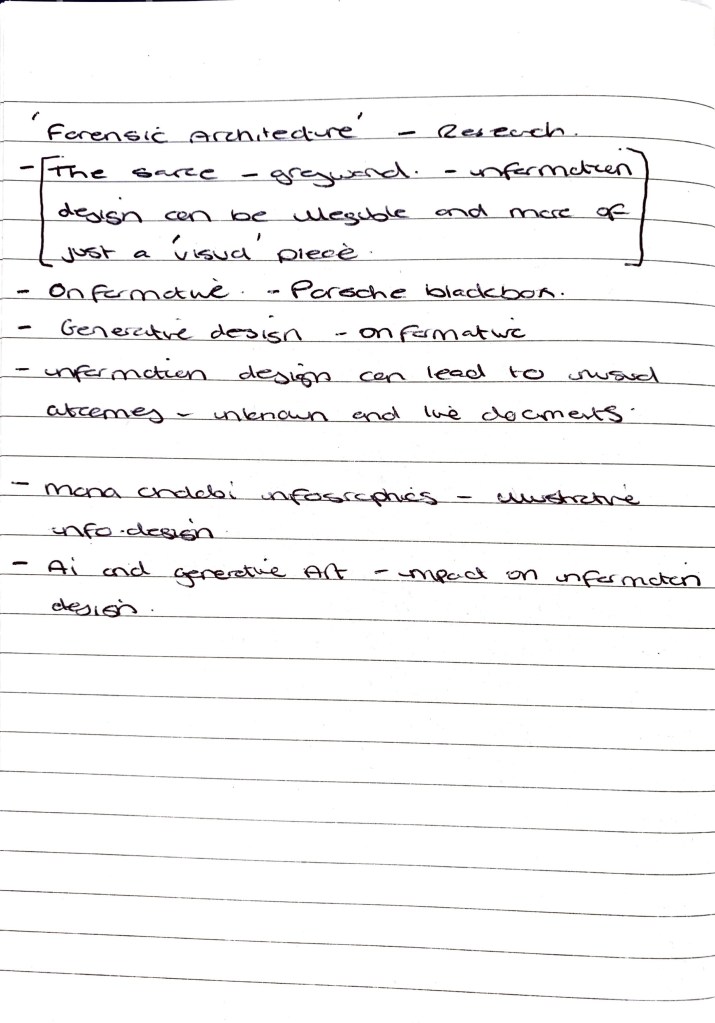 'Forensic Architecture' - Research.
- [The source - greyworld. - information
design can be illegible and more of
just a 'visual' piece.]
- Onformative. - Porsche blackbox.
- Generative design - onformative
- information design can lead to unusual
outcomes - unknown and live documents.
- Mona chalabi infographics - illustrative
info.design.
- Ai and generative Art - impact on information
design.